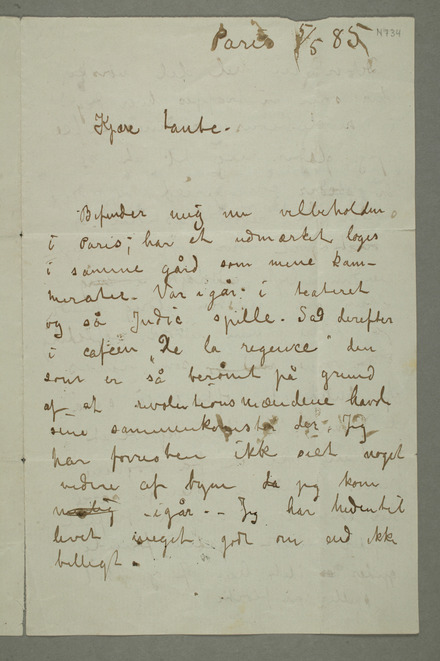 Paris 5/5 85
N 734
Kjære tante.
Befinder mig nu velbeholden
i Paris; har et udmærket logis
i samme gård som mine kam-
merater. Var igår i teateret
og så Judic spille. Sad derefter
i caféen "De la regence" den
som er så berømt på grund
af at revolutionsmændene havd
sine sammenkomster der. Jeg
har forresten ikk seet noget
videre af byen da jeg kom
igår. - Jeg har hidentil
levet meget godt om end ikk
billigt.